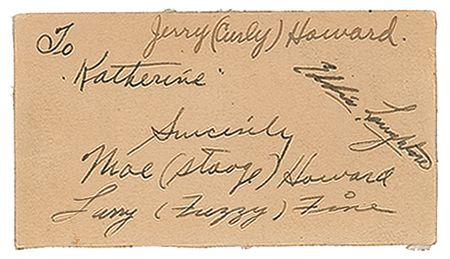 Jerry (Curly) Howard.
To
"Katherine"
Eddie Laughton
Sincerely
Moe (Stooge) Howard
Larry (Fuzzy) Fine